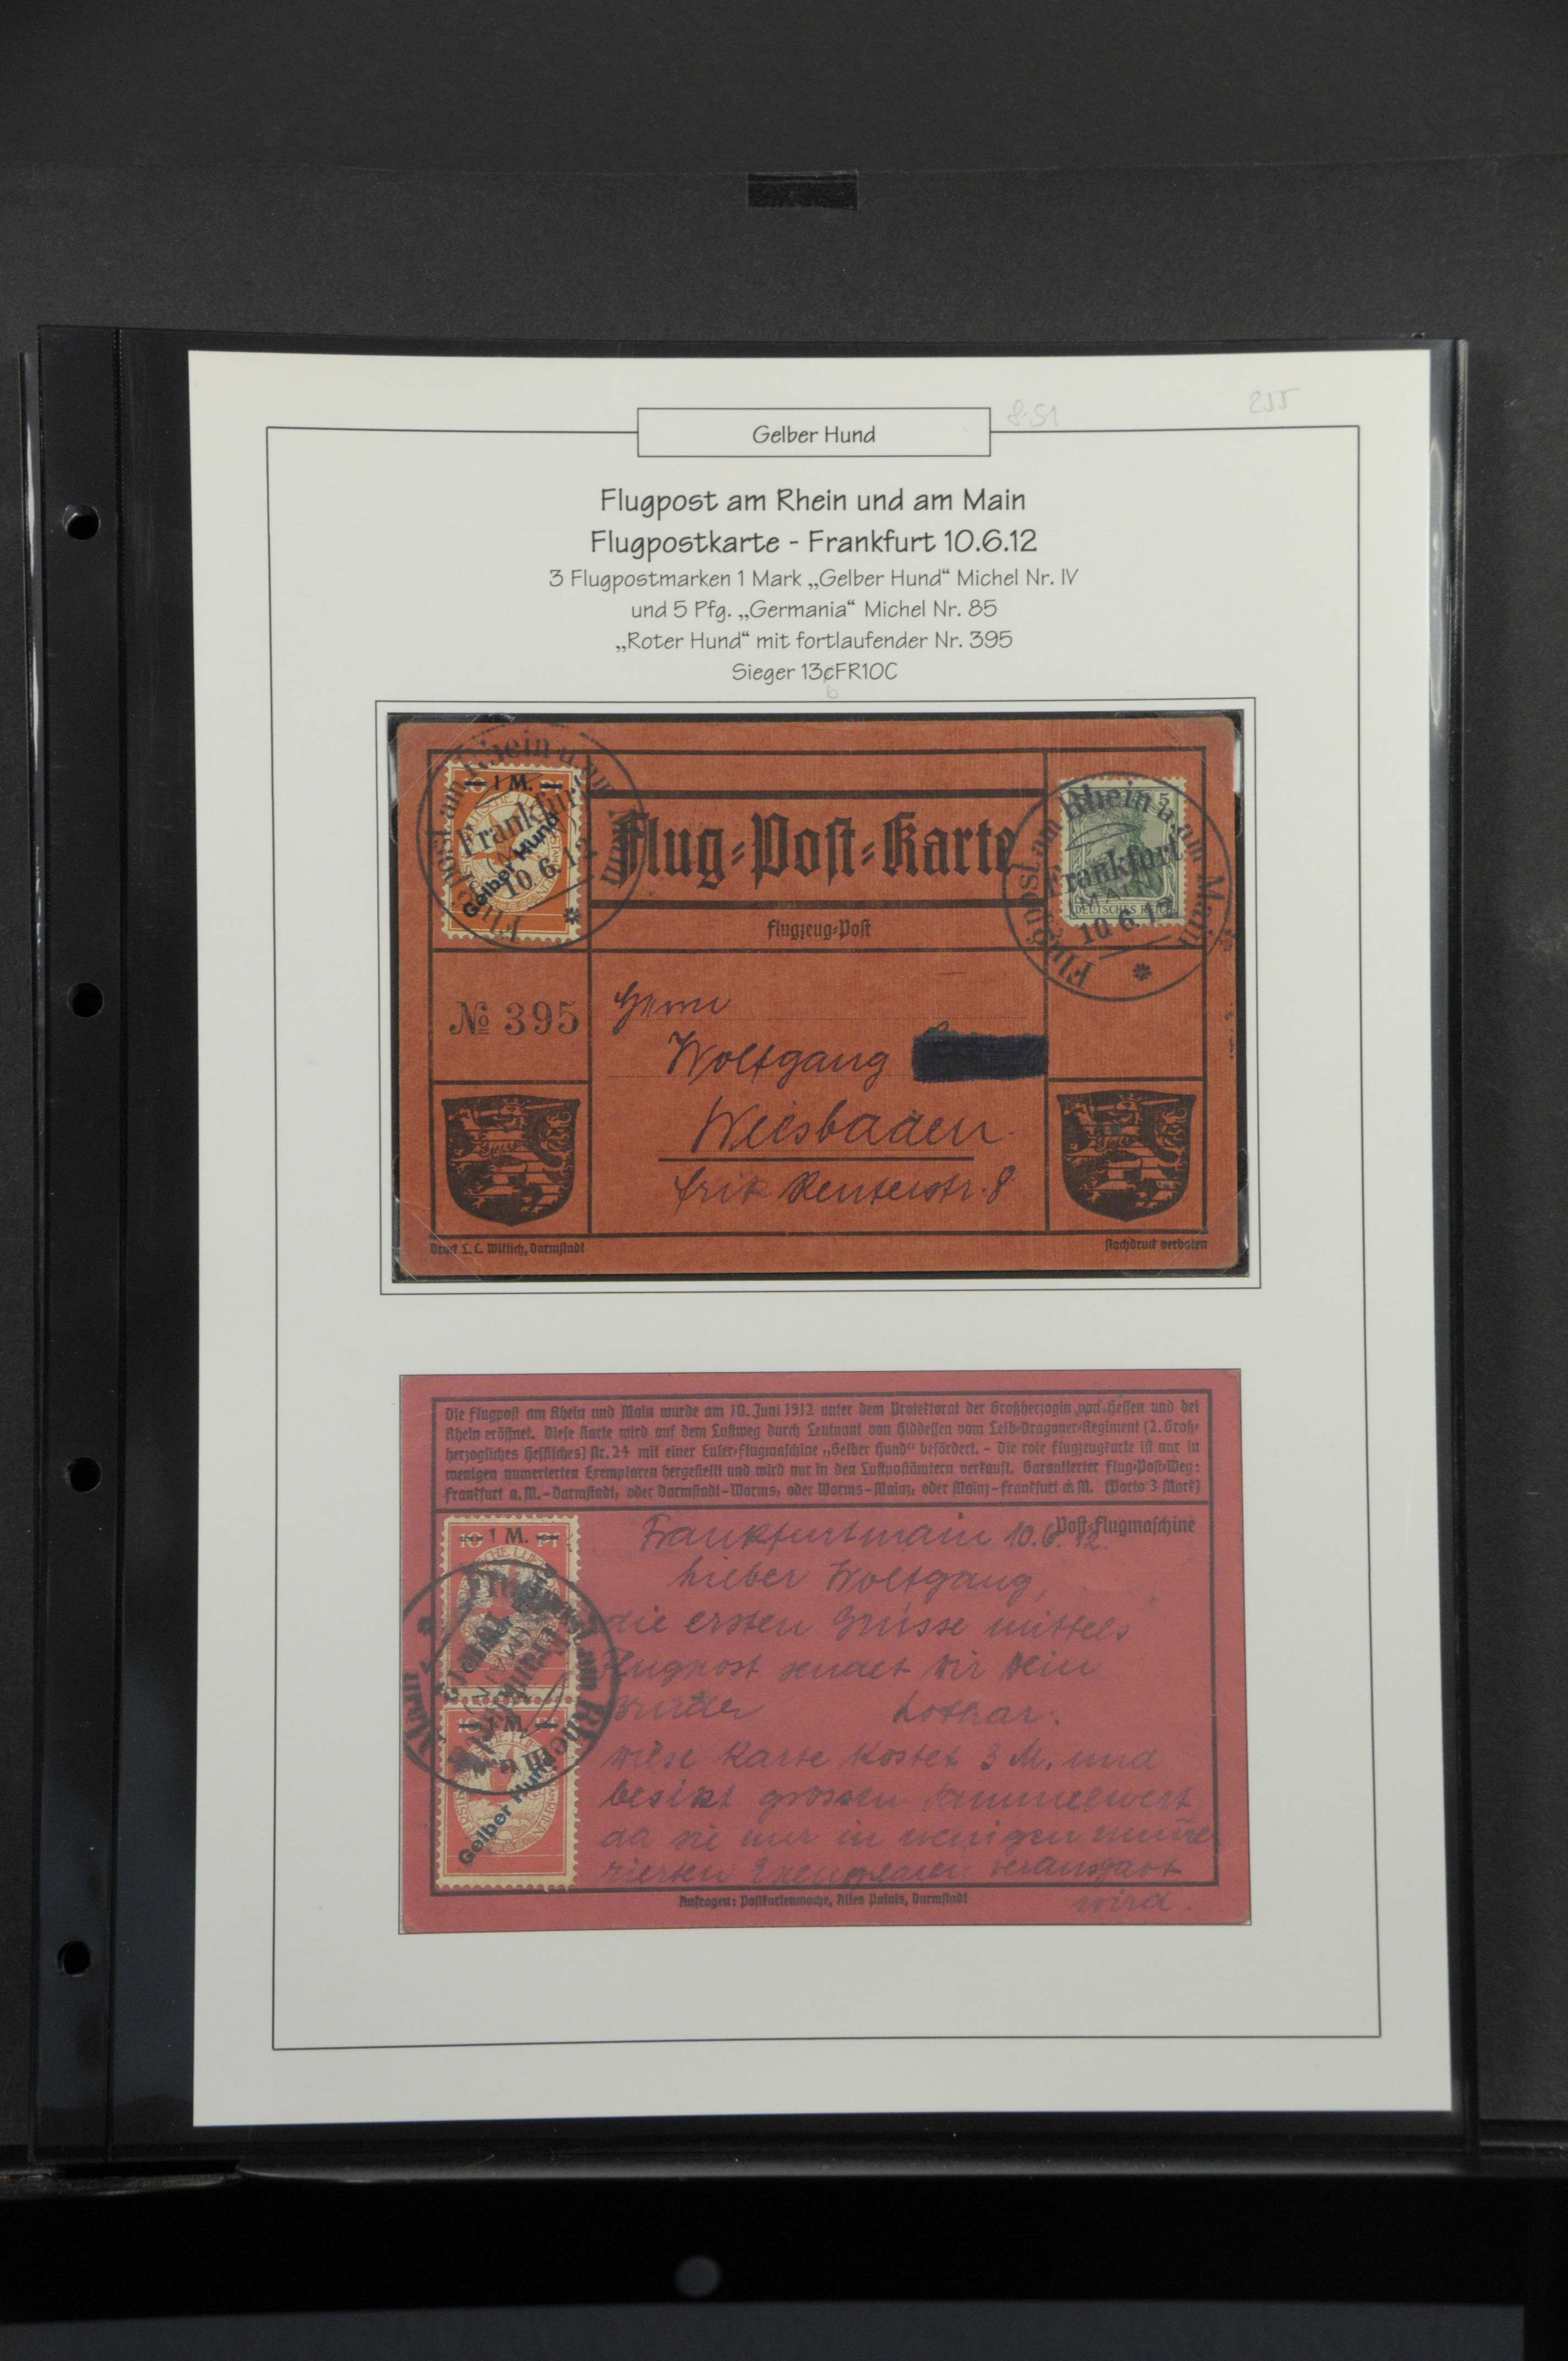 8.51
255
Gelber Hund
Flugpost am Rhein und am Main
Flugpostkarte - Frankfurt 10.6.12
3 Flugpostmarken 1 Mark „Gelber Hund“ Michel Nr. IV
und 5 Pfg. „Germania“ Michel Nr. 85
„Roter Hund“ mit fortlaufender Nr. 395
Sieger 13cFR10C
b
1 M.
Gelber Hund
Flugpost am Rhein u. am Main
Frankfurt
10.6.12
Flug-Post-Karte
Flugzeug-Post
5
DEUTSCHES REICH
Flugpost am Rhein u. am Main
Frankfurt
MAIN
10.6.12
№ 395
Herrn
Wolfgang
Wiesbaden.
Fritz Reuterstr. 8
Druck L. C. Wittich, Darmstadt
Nachdruck verboten
Die Flugpost am Rhein und Main wurde am 10. Juni 1912 unter dem Protektorat der Großherzogin von Hessen und bei
Rhein eröffnet. Diese Karte wird auf dem Luftweg durch Leutnant von Hiddessen vom Leib-Dragoner-Regiment (2. Groß-
herzogliches Hessisches) Nr. 24 mit einer Euler-Flugmaschine „Gelber Hund“ befördert. – Die rote Flugzeugkarte ist nur in
wenigen numerierten Exemplaren hergestellt und wird nur in den Luftpostämtern verkauft. Garantierter Flug-Post-Weg:
Frankfurt a. M.–Darmstadt, oder Darmstadt–Worms, oder Worms–Mainz, oder Mainz–Frankfurt a. M. (Porto 3 Mark)
Post-Flugmaschine
Frankfurtmain 10.6.12.
Lieber Wolfgang,
die ersten Grüsse mittels
Flugpost sendet Dir Dein
Bruder Lothar.
Diese Karte kostet 3 M. und
besitzt grossen Sammelwert
da sie nur in wenigen numme
rierten Exemplaren verausgabt
wird.
1 M.
1 M.
Gelber Hund
Anfragen: Postkartenwoche, Altes Palais, Darmstadt